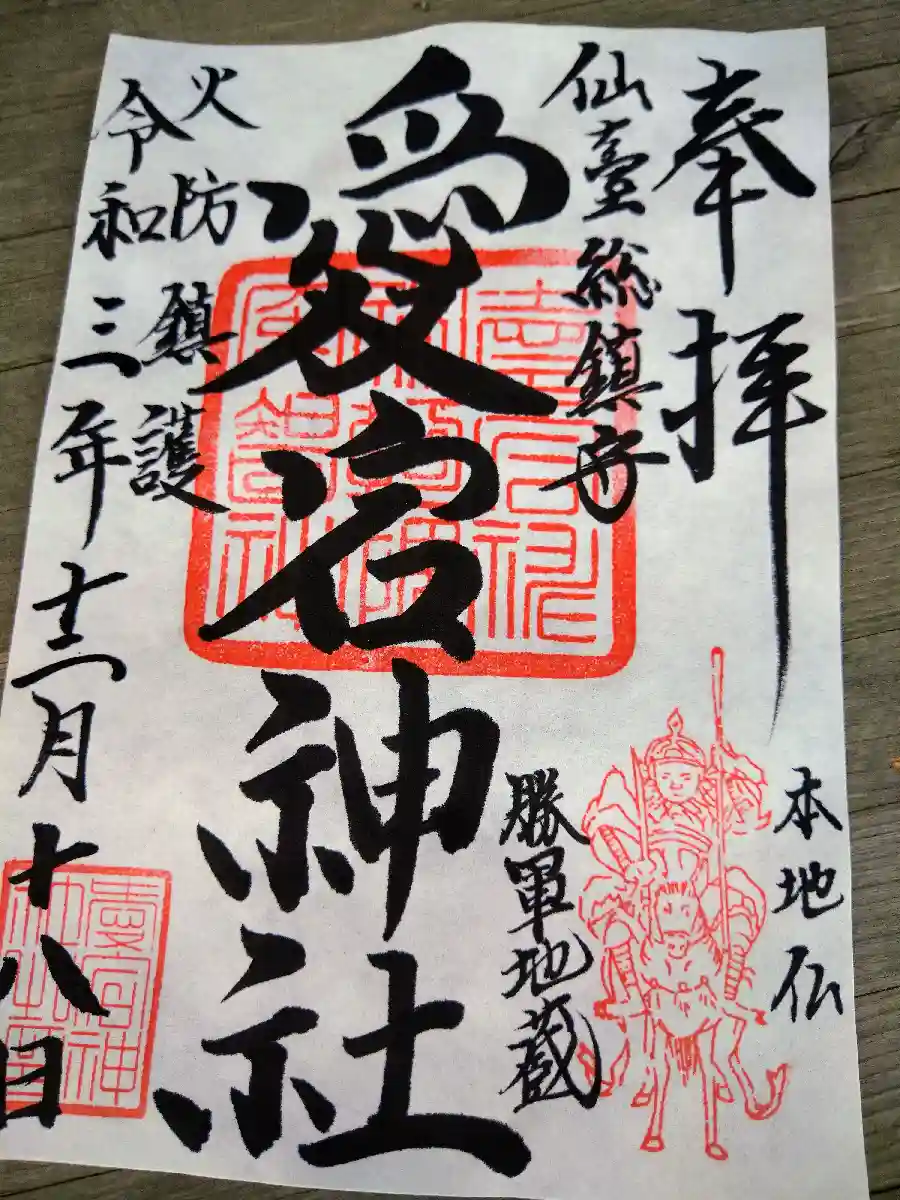 奉拝
仙臺総鎮守
愛宕神社
火防鎮護
令和三年十二月十八日
本地仏
勝軍地蔵
愛宕神